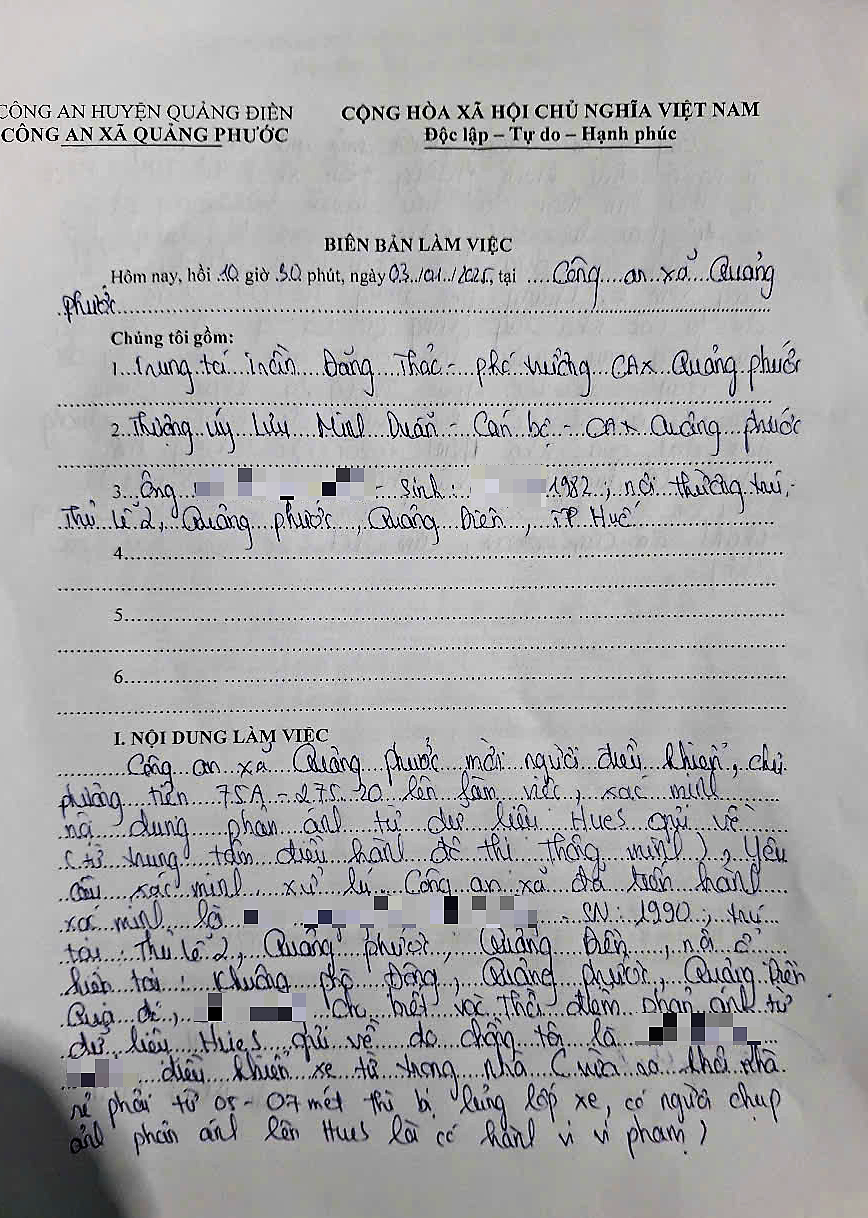 CÔNG AN HUYỆN QUẢNG ĐIỀN
CÔNG AN XÃ QUẢNG PHƯỚC
CỘNG HÒA XÃ HỘI CHỦ NGHĨA VIỆT NAM
Độc lập – Tự do – Hạnh phúc
BIÊN BẢN LÀM VIỆC
Hôm nay, hồi 10 giờ 30 phút, ngày 03/01/2025, tại Công an xã Quảng
phước
Chúng tôi gồm:
1. Trung tá Trần Đăng Thảo - phó trưởng CAX Quảng phước
2. Thượng úy Lưu Minh Duẩn - Cán bộ - CAX Quảng phước
3. Ông - Sinh: 1982, nơi thường trú:
Thủ lễ 2, Quảng phước, Quảng Điền, TP Huế
4.
5.
6.
I. NỘI DUNG LÀM VIỆC
Công an xã Quảng phước mời người điều khiển, chủ
phương tiện 75A - 275.20 lên làm việc, xác minh
nội dung phản ánh từ dữ liệu Hues gửi về
(từ trung tâm điều hành đô thị thông minh), yêu
cầu xác minh xử lý. Công an xã đã tiến hành
xác minh là - SN: 1990, trú
tại: Thủ Lễ 2, Quảng phước, Quảng Điền, nơi ở
hiện tại: Khuông phò Đông, Quảng phước, Quảng Điền
Qua đó, cho biết vào thời điểm phản ánh từ
dữ liệu Hues gửi về do chồng tôi là
điều khiển xe từ trong nhà (vừa ra khỏi nhà
rẽ phải từ 05 - 07 mét thì bị lủng lốp xe, có người chụp
ảnh phản ánh lên Hues là có hành vi vi phạm)